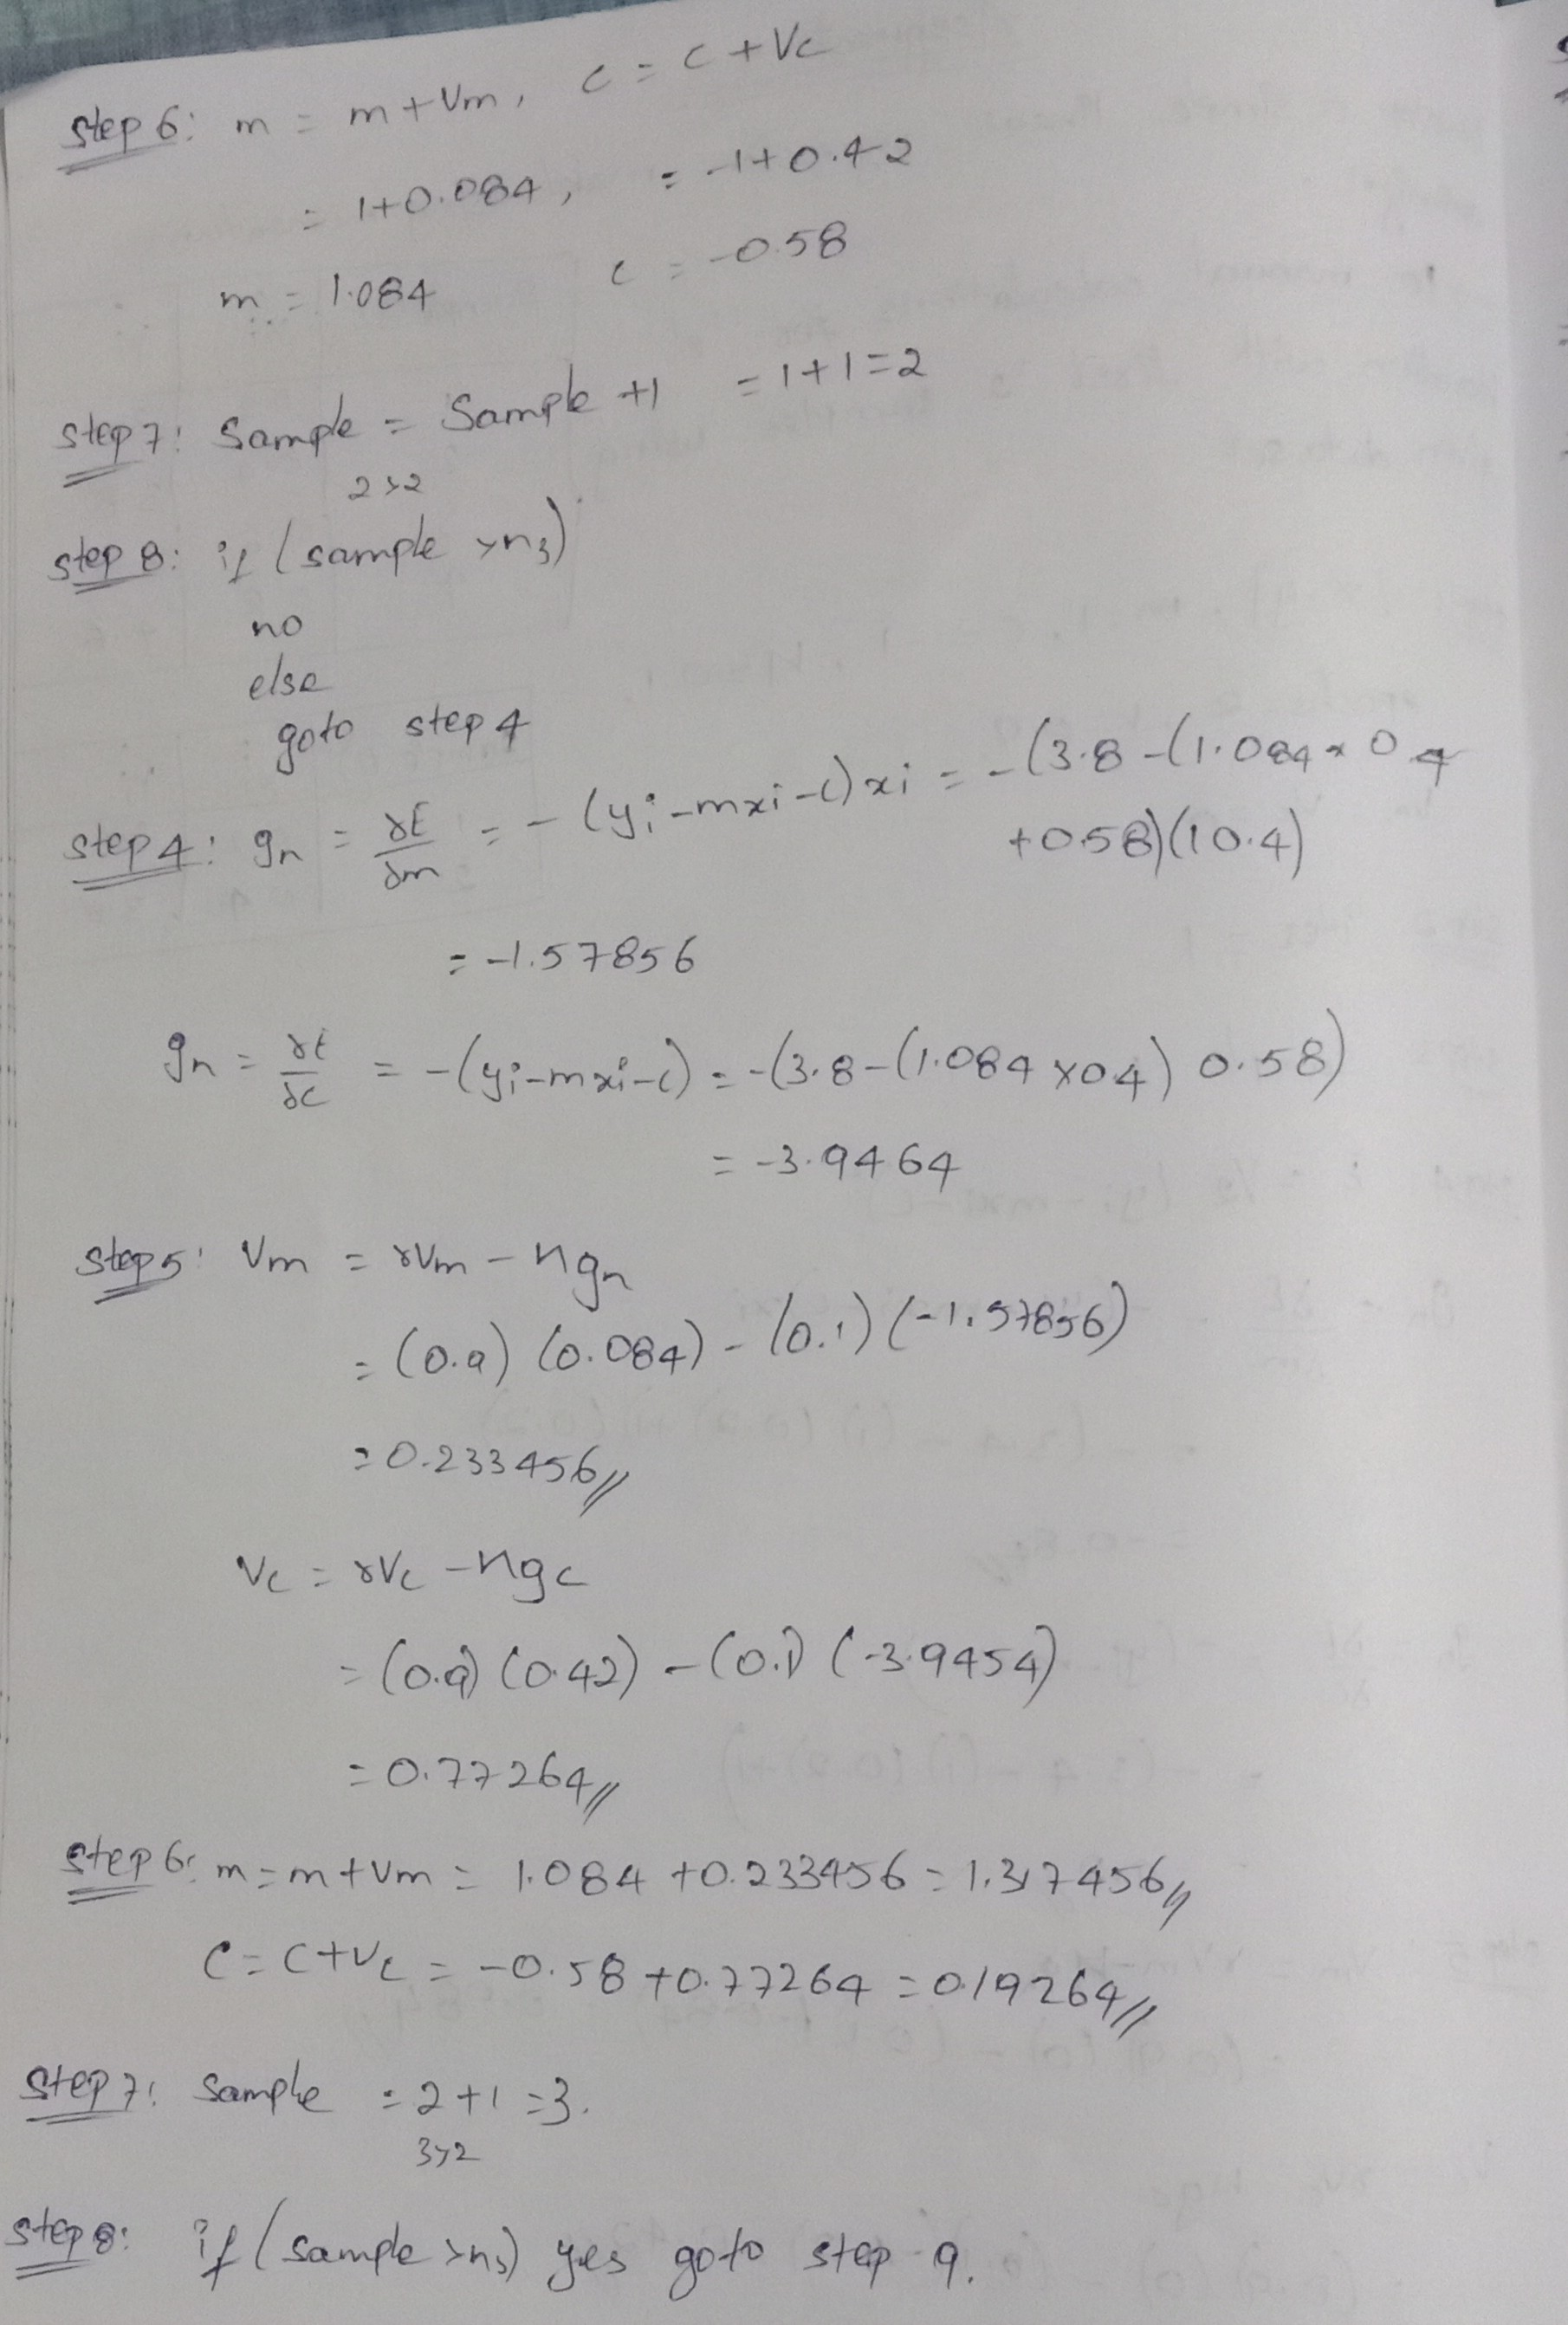 step 6: m = m + Vm, c = c + Vc
= 1+0.084, = -1+0.42
m = 1.084 c = -0.58
step 7: Sample = Sample +1 = 1+1=2
2>2
step 8: if (sample >ns)
no
else
goto step 4
step 4: gn = ∂E/∂m = -(yi-mxi-c)xi = -(3.8-(1.084×0.4
+0.58)(10.4)
= -1.57856
gn = ∂E/∂c = -(yi-mxi-c) = -(3.8-(1.084×0.4) 0.58)
= -3.9464
step 5: Vm = γVm - ηgn
= (0.9) (0.084) - (0.1) (-1.57856)
= 0.233456//
Vc = γVc - ηgc
= (0.9) (0.42) - (0.1) (-3.9454)
= 0.77264//
step 6: m = m+Vm = 1.084 +0.233456 = 1.317456//
c = c+Vc = -0.58 +0.77264 = 0.19264//
step 7: Sample = 2+1 =3.
3>2
step 8: if (sample >ns) yes goto step 9.